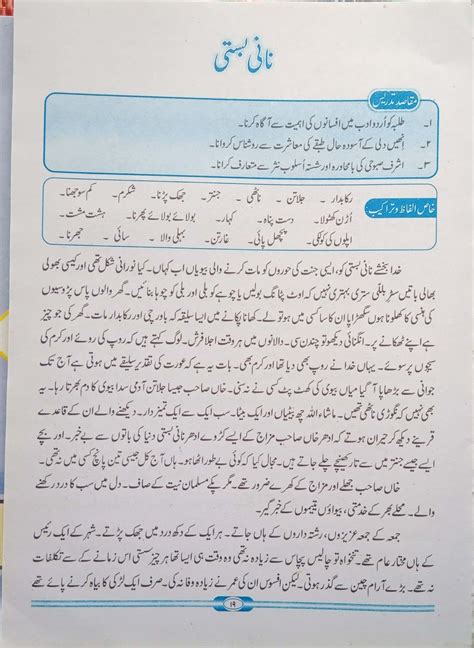 نانی بستی
مقاصد تدریس
۱۔ طلبہ کو اُردو ادب میں افسانوں کی اہمیت سے آگاہ کرنا۔
۲۔ انھیں دلی کے آسودہ حال طبقے کی معاشرت سے روشناس کروانا۔
۳۔ اشرف صبوحی کی بامحاورہ اور شستہ اُسلوبِ نثر سے متعارف کرانا۔
خاص الفاظ و تراکیب
رکابدار ۔ جلاتن ۔ ناٹھی ۔ جنتر ۔ جھک پڑنا۔ شکرم۔ کم سوجھنا۔
اُڑن کھٹولا۔ دست پناہ۔ کہار۔ بولائے بولائے پھرنا۔ ہشت مشت۔
اپلوں کی کوئی۔ پچھل پائی۔ غارتن۔ بہلی والا۔ سائی۔ جھرا۔
خدا بخشے نانی بستی کو، ایسی جنت کی حوروں کو مات کرنے والی بیویاں اب کہاں۔ کیا نورانی شکل تھی اور کیسی بھولی
بھالی باتیں سترّ بہتّر تھی بہتری نہیں کہ اوٹ پٹانگ بولیں یا چوہے کو بلی اور بلی کو چوہا بنائیں۔ گھر والوں پاس پڑوسیوں
کی ہنسی کا کھلونا ہوں سگھڑاپا ان کا ساکسی میں ہو تو لے۔ کھانا پکانے کا ایسا سلیقہ کہ باورچی اور رکابدار مات۔ گھر کی جو چیز
ہے اپنے ٹھکانے پر۔ انگنائی دیکھو تو چندن سی۔ دالانوں میں ہر وقت اجلا فرش۔ لوگ کہتے ہیں کہ روپ کی روئے اور کرم کی
کھائے۔ یہاں خدا نے روپ بھی دیا تھا اور کرم بھی۔ بات یہ ہے کہ عورت کی تقدیر سلیقے میں ہوتی ہے آج تک
جوانی سے بڑھاپا آ گیا میاں بیوی کی کھٹ پٹ کسی نے نہ سنی۔ خاں صاحب جیسا جلاتن آدمی سدا بیوی کا دم بھرتا رہا۔ یہ
بھی نہیں کہ نگوڑی ناٹھی تھیں۔ ماشاء اللہ چھ بیٹیاں اور ایک بیٹا۔ سب ایک سے ایک تمیز دار۔ دیکھنے والے ان کے قاعدے
قرینے دیکھ کر حیران ہوتے کہ ادھر خاں صاحب مزاج کے ایسے کڑوے ادھر نانی بستی دنیا کی باتوں سے بے خبر۔ اور بچے
ایسے جیسے جنتر میں سے تار کھینچے چلے جاتے ہیں۔ مجال کیا کہ کوئی بے طور اٹھا ہو۔ ہاں آج کل جیسی تین پانچ کسی میں نہ تھی۔
خاں صاحب جھلے اور مزاج کے کھرے ضرور تھے۔ مگر پکے مسلمان نیت کے صاف۔ دل میں سب کا درد رکھنے
والے۔ محلے بھر کے خدمتی، بیواؤں یتیموں کے خبر گیر۔
جمعہ کے جمعہ عزیزوں، رشتہ داروں کے ہاں جاتے۔ ہر ایک کے دکھ درد میں جھک پڑتے۔ شہر کے ایک رئیس
کے ہاں مختار عام تھے۔ تنخواہ تو چالیس پچاس سے زیادہ نہ تھی وہ وقت ہی ایسا تھا ہر چیز سستی اس زمانے کے سے تکلفات
نہ تھے۔ بڑے آرام چین سے گذر ہوتی۔ لیکن افسوس ان کی عمر نے زیادہ وفا نہ کی۔ صرف ایک لڑکی کا بیاہ کرنے پائے تھے
۱۹